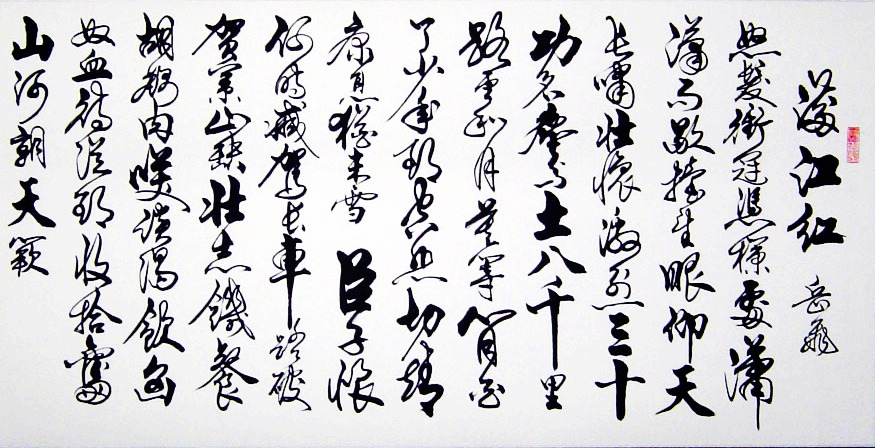 滿江紅 岳飛
怒髮衝冠憑欄處瀟
瀟雨歇擡望眼仰天
長嘯壯懷激烈三十
功名塵与土八千里
路雲和月莫等閒白
了少年頭空悲切靖
康恥猶未雪臣子恨
何時滅駕長車踏破
賀蘭山缺壯志饑餐
胡虜肉咲談渴飲匈
奴血待從頭收拾舊
山河朝天闕